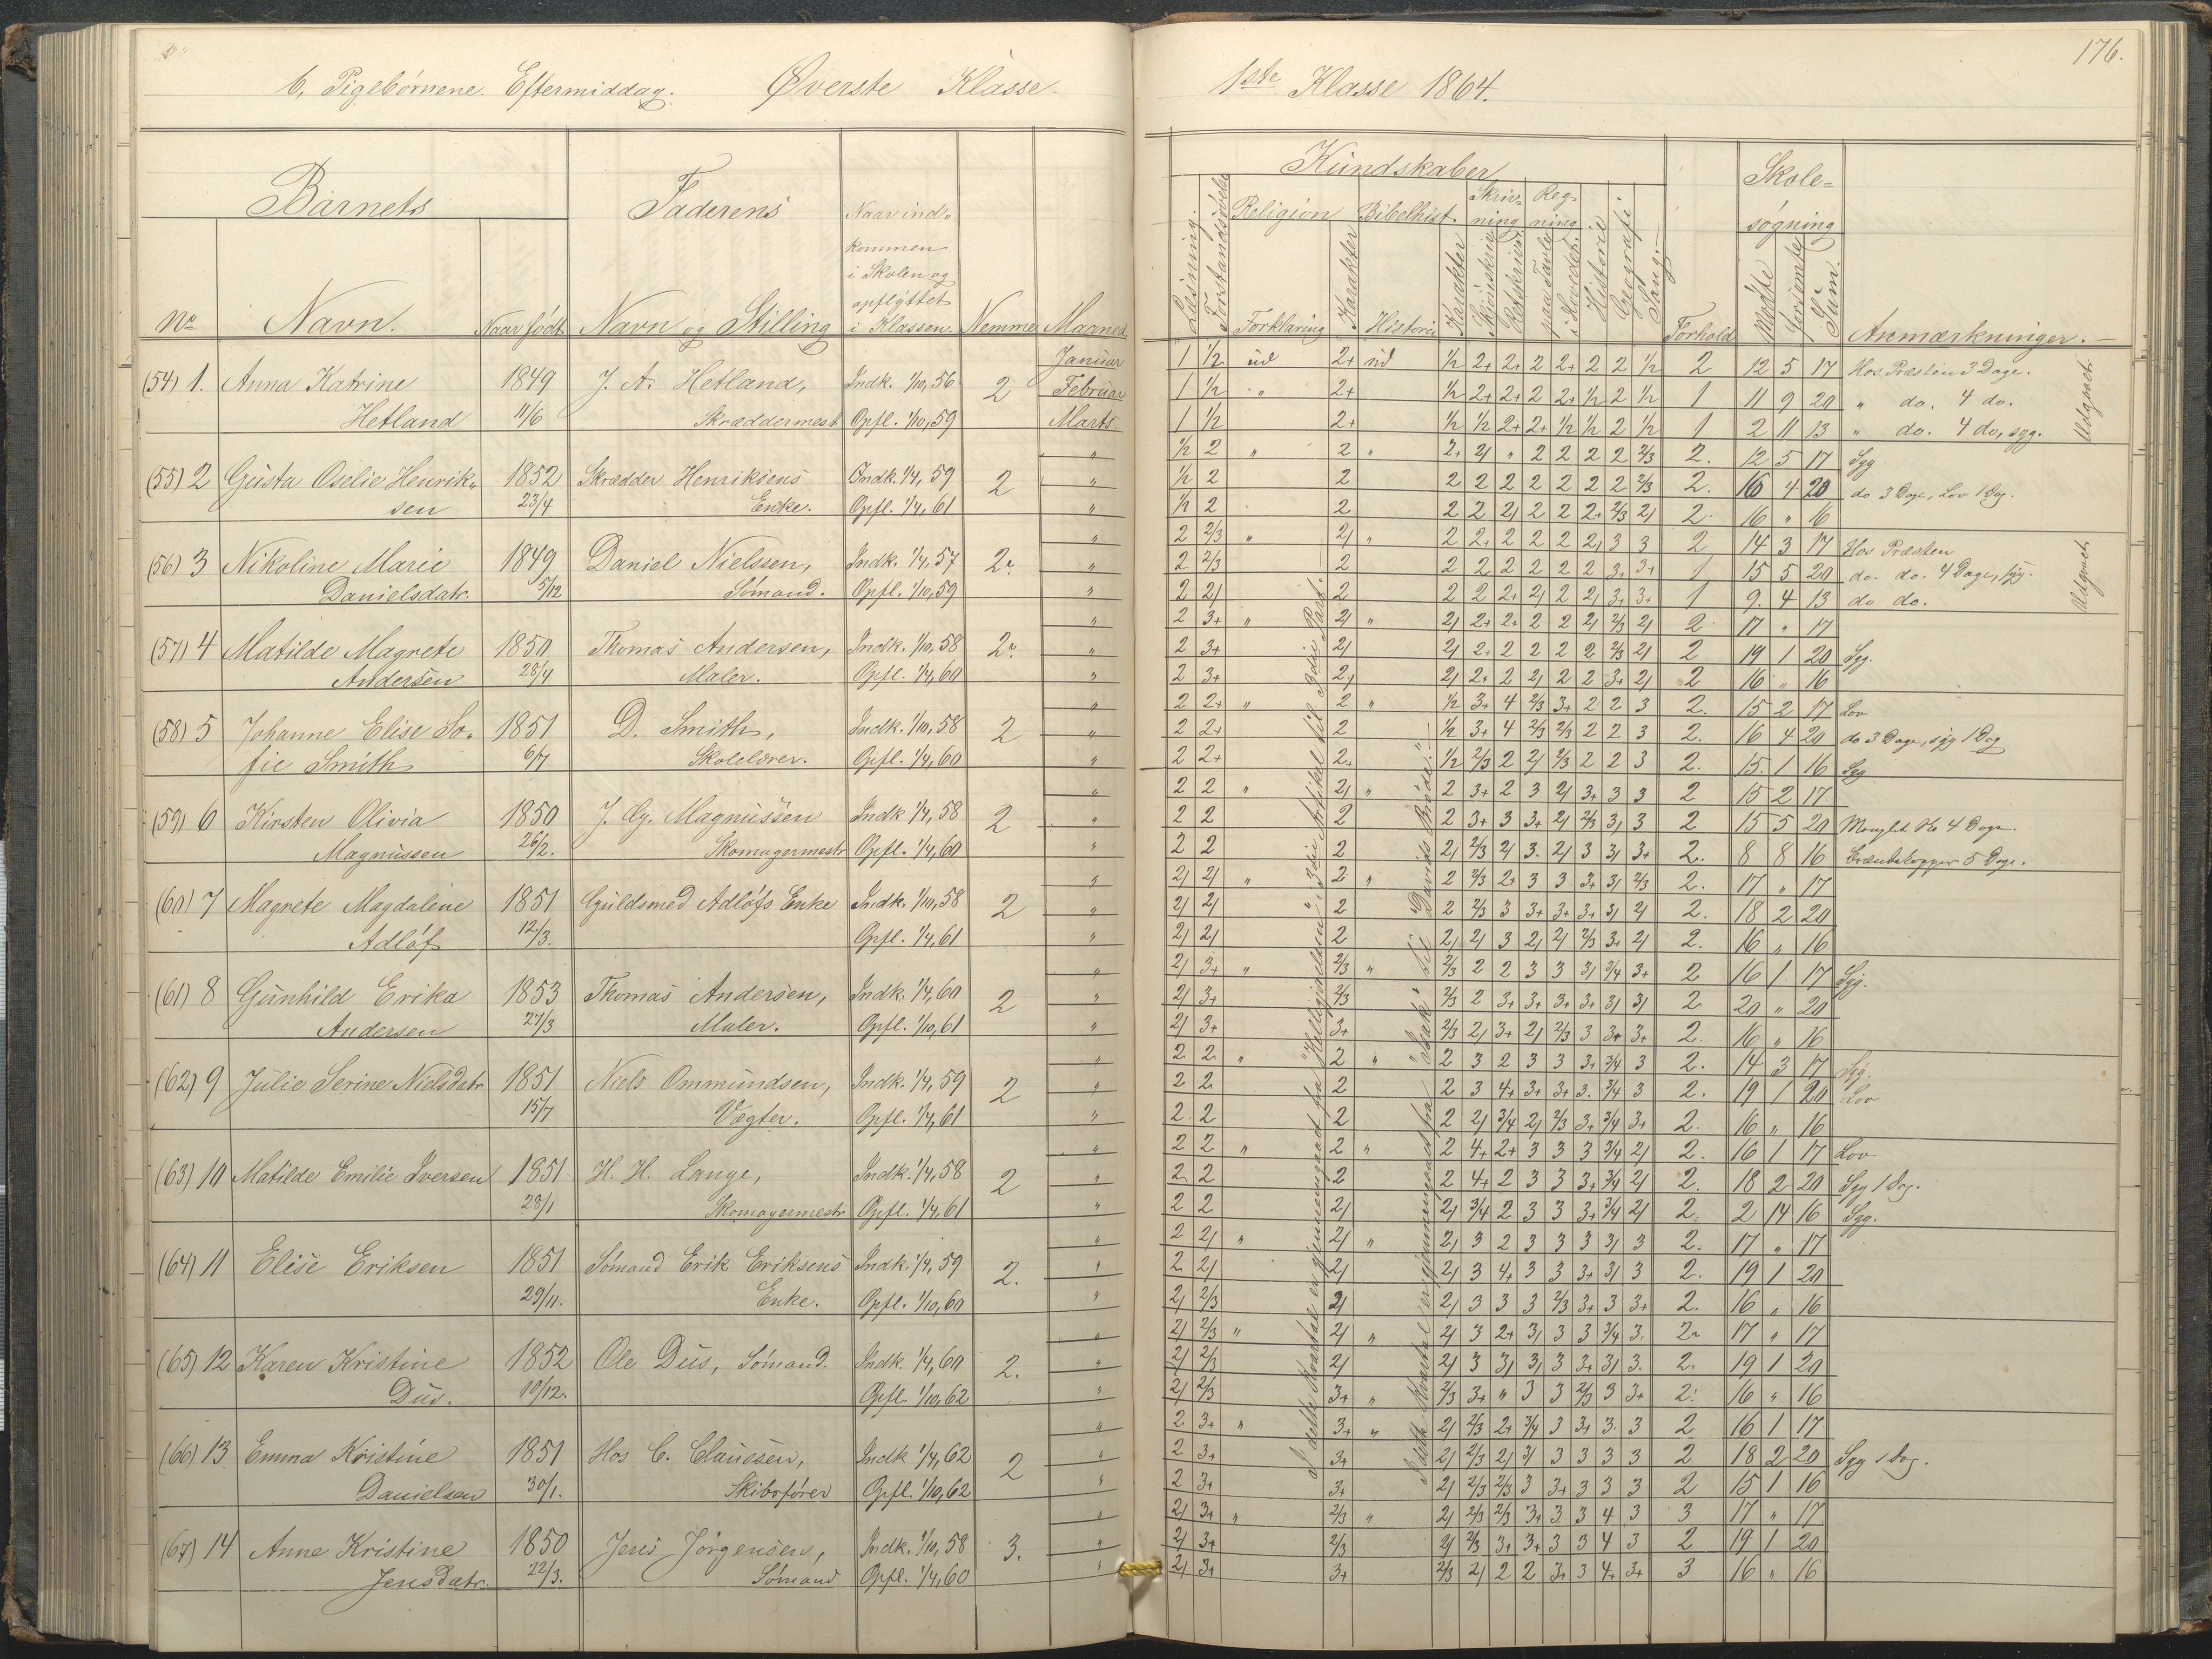 6, Pigebørnene. Eftermiddag. Øverste Klasse.
1ste Klasse 1864.
176.
Barnets
Faderens
Naar ind-
kommen
i Skolen og
opflyttet
i Klassen.
No
Navn.
Naar født
Navn og Stilling
Nemme
Maaned
Kundskaber
Læsning.
Forstandsøvelse
Religion
Forklaring
Karakter
Bibelhist.
Historie
Karakter
Skriv-
ning
Skjønskrivn.
Retskrivn.
Reg-
ning
paa Tavle
i Hovedet.
Historie
Geografi
Sang.
Forhold
Skole-
søgning
Mødte
Forsømte
Sum.
Anmærkninger.
Januar
(54) 1. Anna Katrine 1849 J. A. Hetland, Indk. 1/10, 56 2 Februar
Hetland 11/6 Skræddermest. Opfl. 1/10, 59 Marts
(55) 2 Gusta Oselie Henrik- 1852 Skrædder Henriksens Indk. 1/4, 59 2 "
sen 23/4 Enke. Opfl. 1/4, 61 "
(56) 3 Nikoline Marie 1849 Daniel Nielssen, Indk. 1/4, 57 2. "
Danielsdatr. 5/12 Sømand. Opfl. 1/10, 59 "
(57) 4 Matilde Magrete 1850 Thomas Andersen, Indk. 1/10, 58 2. "
Andersen 28/4 Maler. Opfl. 1/4, 60 "
(58) 5 Johanne Elise So- 1851 D. Smith, Indk. 1/10, 58 2 "
fie Smith 6/7 Skolelærer. Opfl. 1/4, 60 "
(59) 6 Kirsten Olivia 1850 J. Eg. Magnussen Indk 1/4, 58 2 "
Magnussen 26/2. Skomagermestr Opfl. 1/4, 60 "
(60) 7 Magrete Magdalene 1851 Guldsmed Adløfs Enke Indk. 1/10, 58 2 "
Adløf 12/3. Opfl. 1/4, 61 "
(61) 8 Gunhild Erika 1853 Thomas Andersen, Indk. 1/4, 60 2 "
Andersen 27/3 Maler. Opfl. 1/10, 61 "
(62) 9 Julie Serine Nielsdatr 1851 Niels Ommundsen, Indk. 1/4, 59 2 "
15/7 Vægter. Opfl. 1/4, 61 "
(63) 10 Matilde Emilie Iversen 1851 H. H. Lange, Indk. 1/4, 58 2 "
28/1 Skomagermestr Opfl. 1/4, 61 "
(64) 11 Elise Eriksen 1851 Sømand Erik Eriksens Indk. 1/4, 59 2. "
29/11. Enke. Opfl. 1/10, 60 "
(65) 12 Karen Kristine 1852 Ole Dus, Sømand. Indk. 1/4, 60 2. "
Dus. 10/12. Opfl. 1/10, 62 "
(66) 13 Emma Kristine 1851 Hos C. Claussen, Indk 1/4, 62 2 "
Danielsen 30/1. Skibsfører Opfl. 1/10, 62 "
(67) 14 Anne Kristine 1850 Jens Jørgensen, Indk. 1/10, 58 3. "
Jensdatr. 22/3. Sømand Opfl. 1/4, 60 "
1 1/2 ud 2+ ud 1/2 2+ 2+ 2 2+ 2 2 1/2 2 12 5 17 Hos Præsten 3 Dage.
1 1/2 " 2+ 1/2 2+ 2+ 2 2+ 1/2 2 1/2 1 11 9 20 " do. 4 do.
1 1/2 2+ 1/2 1/2 2+ 2+ 1/2 1/2 2 1/2 1 2 11 13 " do. 4 do, syg.
Udgaaet.
1/2 2 " 2 " 2+ 2/ " 2 2 2 2 2/3 2. 12 5 17 Syg
1/2 2 2 2 2 2 2 2 2 2 2/3 2. 16 4 20 do 3 Dage, Lov 1 Dag.
1/2 2 2 2 2 2/ 2 2 2+ 2/3 2/ 2. 16 " 16
2 2/3 " 2/ " 2 2+ 2 2 2 2/ 3 3 2 14 3 17 Hos Præsten
2 2/3 2 2 2 2 2 2 2 3+ 3+ 1 15 5 20 do. do. 4 Dage, syg.
2 2/ 2 2 2 2+ 2/ 2 2/ 3+ 3+ 1 9. 4 13 do do.
Udgaaet.
2 3+ " 2/ " 2/ 2+ 2+ 2 2 2/ 2/3 2/ 2 17 " 17
2 3+ 2/ 2/ 2+ 2 2 2 2 2/3 2/ 2 19 1 20 Syg.
2 3+ 2/ 2/ 2+ 2 2/ 2 2 3+ 2/ 2 16 " 16
2 2+ " 2 " 1/2 3+ 4 2/3 3+ 2 2 3 2. 15 2 17 Lov
2 2+ 2 1/2 3+ 4 2/3 2/3 2 2 3 2. 16 4 20 do 3 Dage, syg 1 Dag
2 2+ 2+ 1/2 2/3 2 2/ 2/3 2 2 3 2. 15. 1 16 Syg
2 2 " 2/ " 2 3+ 2 3 2/ 3+ 3 3 2 15 2 17
2 2 2 2 3+ 3 3+ 2/ 2/3 3/ 3 2 15 5 20
2 2 2 2/ 2/3 2/ 3. 2/ 3 3/ 3+ 2. 8 8 16 5 Dage.
2/ 2/ " 2 " 2 2/3 2+ 3 3 3+ 3/ 2/3 2. 17 " 17
2/ 2/ 2 2 2/3 3 3+ 3+ 3+ 3/ 2/ 2. 18 2 20
2/ 2/ 2 2/ 2/ 3 2/ 2/ 2/3 3+ 2/ 2. 16 " 16
2/ 3+ " 2/3 " 2/3 2 2 3 3 3/ 3/4 3+ 2 16 1 17 Syg.
2/ 3+ 2/3 2/3 2 3+ 3+ 3+ 3+ 3/ 3/ 2 20 " 20
2/ 3+ 3+ 2/3 2/ 3+ 2/ 2/3 3 3+ 3+ 2. 16 " 16
2 2 " 2 " 2 3 2 3 3 3+ 3/4 3 2. 14 3 17 Syg.
2 2 2 2 3 4+ 3+ 3+ 3. 3/4 3 2. 19 1 20 Lov
2 2 2 2 2/ 3/4 2/ 2/3 3+ 3/4 3+ 2. 16 " 16
2 2 " 2 " 2 4+ 2+ 3 3 3 3/4 2/ 2. 16 1 17 Lov
2 2 2 2 4+ 2 3 3 3+ 3/4 2/ 2. 18 2 20 Syg 1 Dag.
2 2 2/ 2/ 3/4 2 3 3 3+ 3/4 2/ 2. 2 14 16 Syg.
2 2/ " 2/ " 2/ 3 2 3 3 3 3/ 3 2. 17 " 17
2 2/ 2/ 2/ 3 4+ 3 3 3+ 3/ 3 2. 19 1 20
2/ 2/3 2/ 2/ 3 3 3 2/3 3+ 3 3+ 2. 16 " 16
2/ 2/3 " 2/ " 2/ 3 2+ 3/ 3 3 3/4 3. 2. 17 " 17
2/ 2/3 2/ 2/ 3 3/ 3/ 3 3+ 3/ 3. 2. 19 1 20
2/ 2/3 3+ " 2/3 3+ " 3 3 2/3 3 3+ 2. 16 " 16
2 3+ " 3+ " 2/ 2/3 2+ 3/4 3 3+ 3. 3 2 16 1 17
2 3+ 3+ 2/ 2/3 2/ 3/ 3 3 3 3 2 18 2 20 Syg 1 Dag.
2 3+ 3+ 2/ 2/3 2/3 3 3+ 3 3 3 2 15 1 16
2/ 3+ " 2/3 " 2/ 2/3 2/3 3+ 3 3 4 3 3 17 " 17
2/ 3+ 2/3 2/ 2/3 3+ 3+ 3 3 4 3 2 19 1 20
2/ 3+ 3+ 2/3 2/ 2 2 3+ 3 4+ 3+ 3 16 " 16
I dette Kvartal er gjennemgaaet fra "Helligdelsen" 3die Artikel til 3die Part.
I dette Kvartal er gjennemgaaet fra "Isak" til "Davids Brøde".